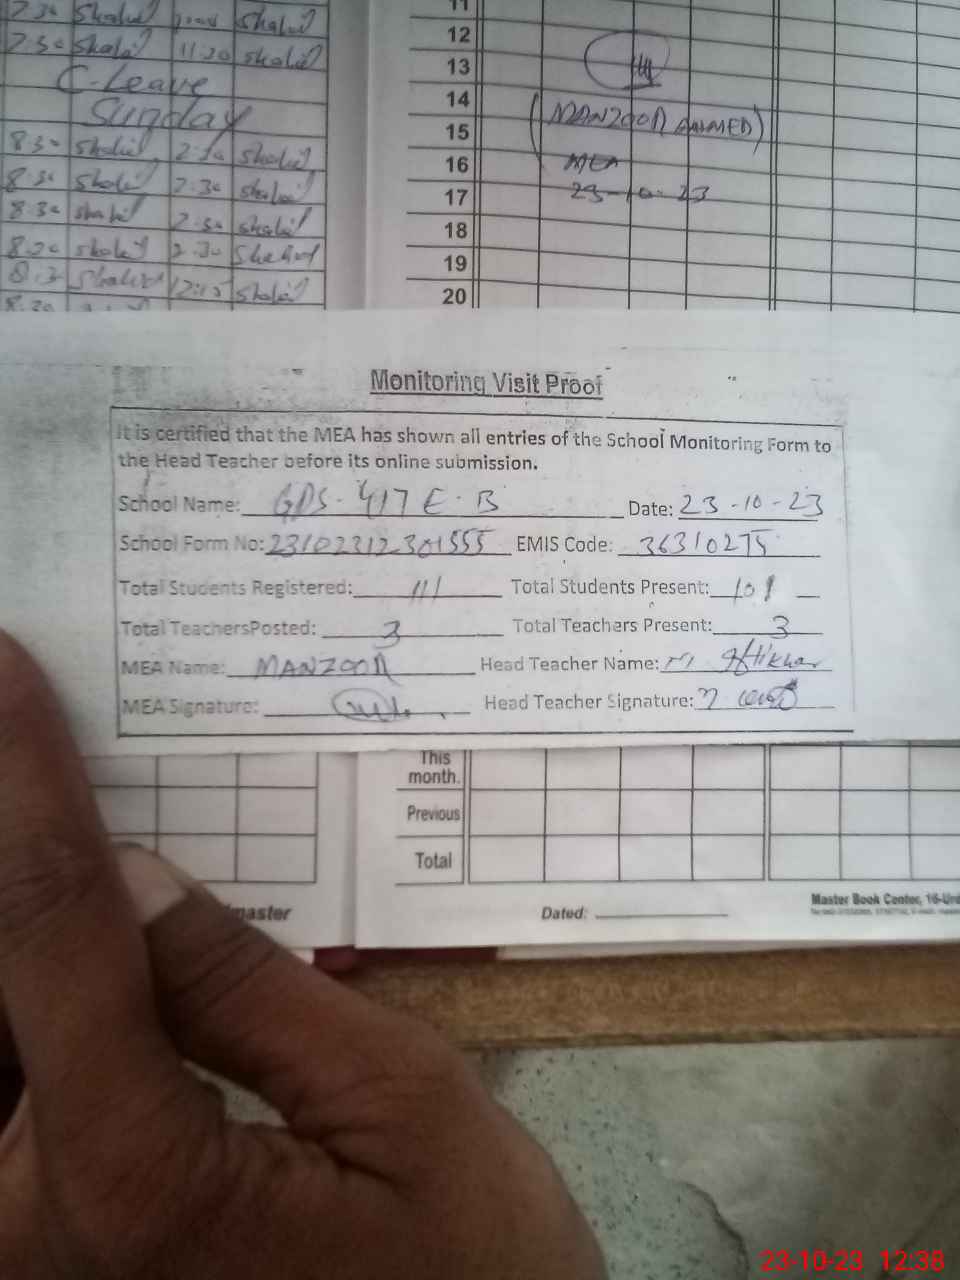 7:30 Shahid Shahid
7:30 Shahid 11:30 Shahid
C-Leave
Sunday
8:30 Shahid 2:30 Shahid
8:30 Shahid 2:30 Shahid
8:30 Shahid 2:30 Shahid
8:30 Shahid 2:30 Shahid
8:3 Shahid 12:15 Shahid
8:30
11
12
13
14
15
16
17
18
19
20
(MANZOOR AHMED)
MEA
23-10-23
Monitoring Visit Proof
It is certified that the MEA has shown all entries of the School Monitoring Form to
the Head Teacher before its online submission.
School Name: GPS-417 E-B Date: 23-10-23
School Form No: 23102312301555 EMIS Code: 36310275
Total Students Registered: 111 Total Students Present: 101
Total TeachersPosted: 3 Total Teachers Present: 3
MEA Name: MANZOOR Head Teacher Name: M Iftikhar
MEA Signature: Head Teacher Signature:
This
month.
Previous
Total
master Dated: Master Book Center, 16-Urd
23-10-23 12:38